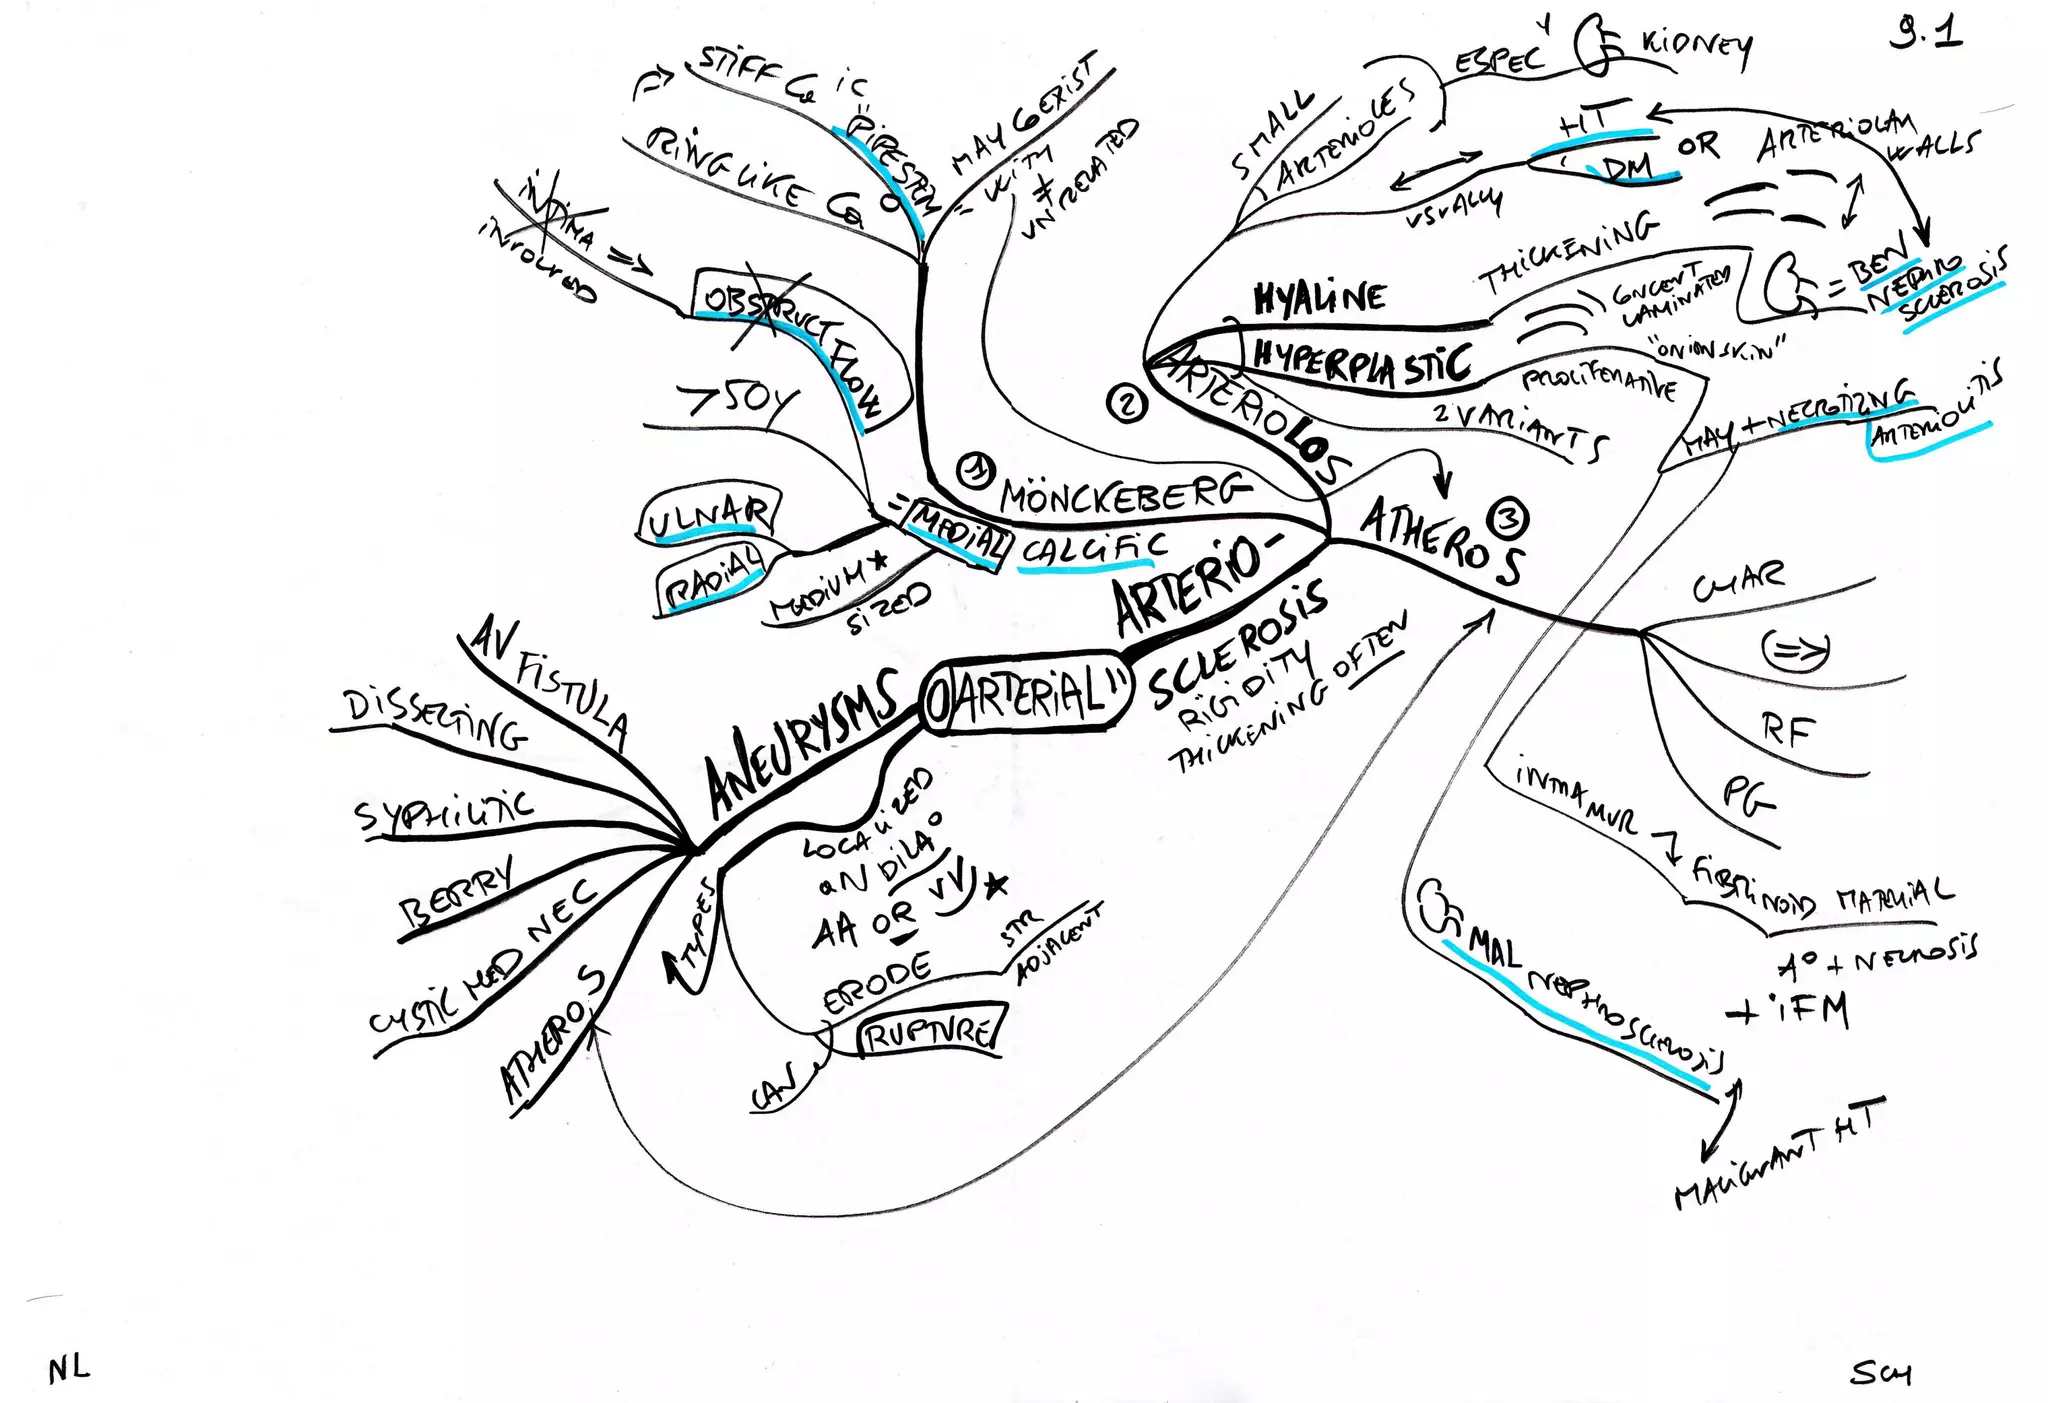 9.1
ESPEC Y KIDNEY
SMALL
ARTERIOLES
HT
OR
DM
USUALLY
ARTERIOLAR
WALLS
THICKENING
= BEN
NEPHRO
SCLEROSIS
HYALINE
HYPERPLASTIC
CONCENT
LAMINATED
"ONION SKIN"
PROLIFERATIVE
2 VARIANTS
MAY + NECROTIZING
ARTERIOLITIS
② ARTERIOLOS
STIFF Ca ic
"PIPESTEM"
RING LIKE Ca
MAY COEXIST
WITH
≠
UNRELATED
INTIMA
INVOLVED
⇒
OBSTRUCT FLOW
>50Y
ULNAR
RADIAL
MEDIUM*
SIZED
① MÖNCKEBERG
= MEDIAL CALCIFIC
ATHEROS ③
CHAR
(⇒)
RF
PG
INTRAMUR
FIBRINOID MATERIAL
A° + NECROSIS
+ IFM
MAL NEPHROSCLEROSIS
MALIGNANT HT
ARTERIO-
SCLEROSIS
RIGIDITY
THICKENING OFTEN
ARTERIAL
ANEURYSMS
AV FISTULA
DISSECTING
SYPHILITIC
BERRY
CYSTIC MED NEC
ATHEROS
TYPES
LOCALIZED
aN DILA°
AA OR VV *
ERODE
STR
ADJACENT
RUPTURE
CAN
NL